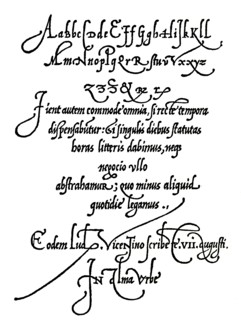 M m N n o p P q Q r R s t u V v x x y z
Fient autem commode omnia, si recte tempora
dispensabūtur: & singulis diebus statutas
horas litteris dabimus, neq;
negocio vllo
abstrahamur; quo minus aliquid
quotidie legamus .,
Eodem Lud. Vicentino scribēte .vii. augusti.
IN Alma Vrbe